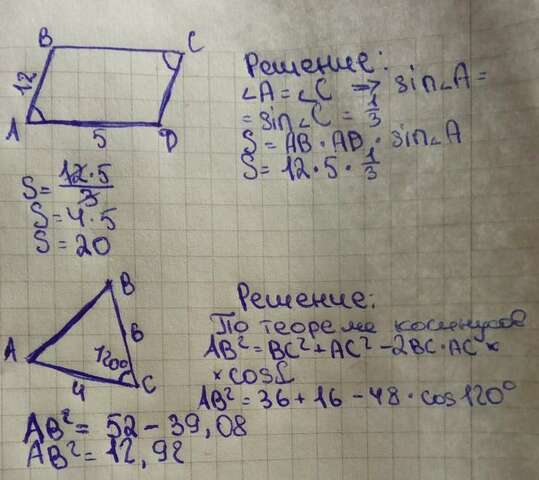 B
C
12
A
5
D
Решение:
∠A = ∠C => sin∠A =
= sin∠C = 1/3
S = AB · AB · sin∠A
S = 12 · 5 · 1/3
S = 12·5/3
S = 4·5
S = 20
B
A
6
120°
4
C
Решение:
По теореме косинусов
AB² = BC² + AC² - 2BC · AC ×
× cos
AB² = 36 + 16 - 48 · cos120°
AB² = 52 - 39,08
AB² = 12,92